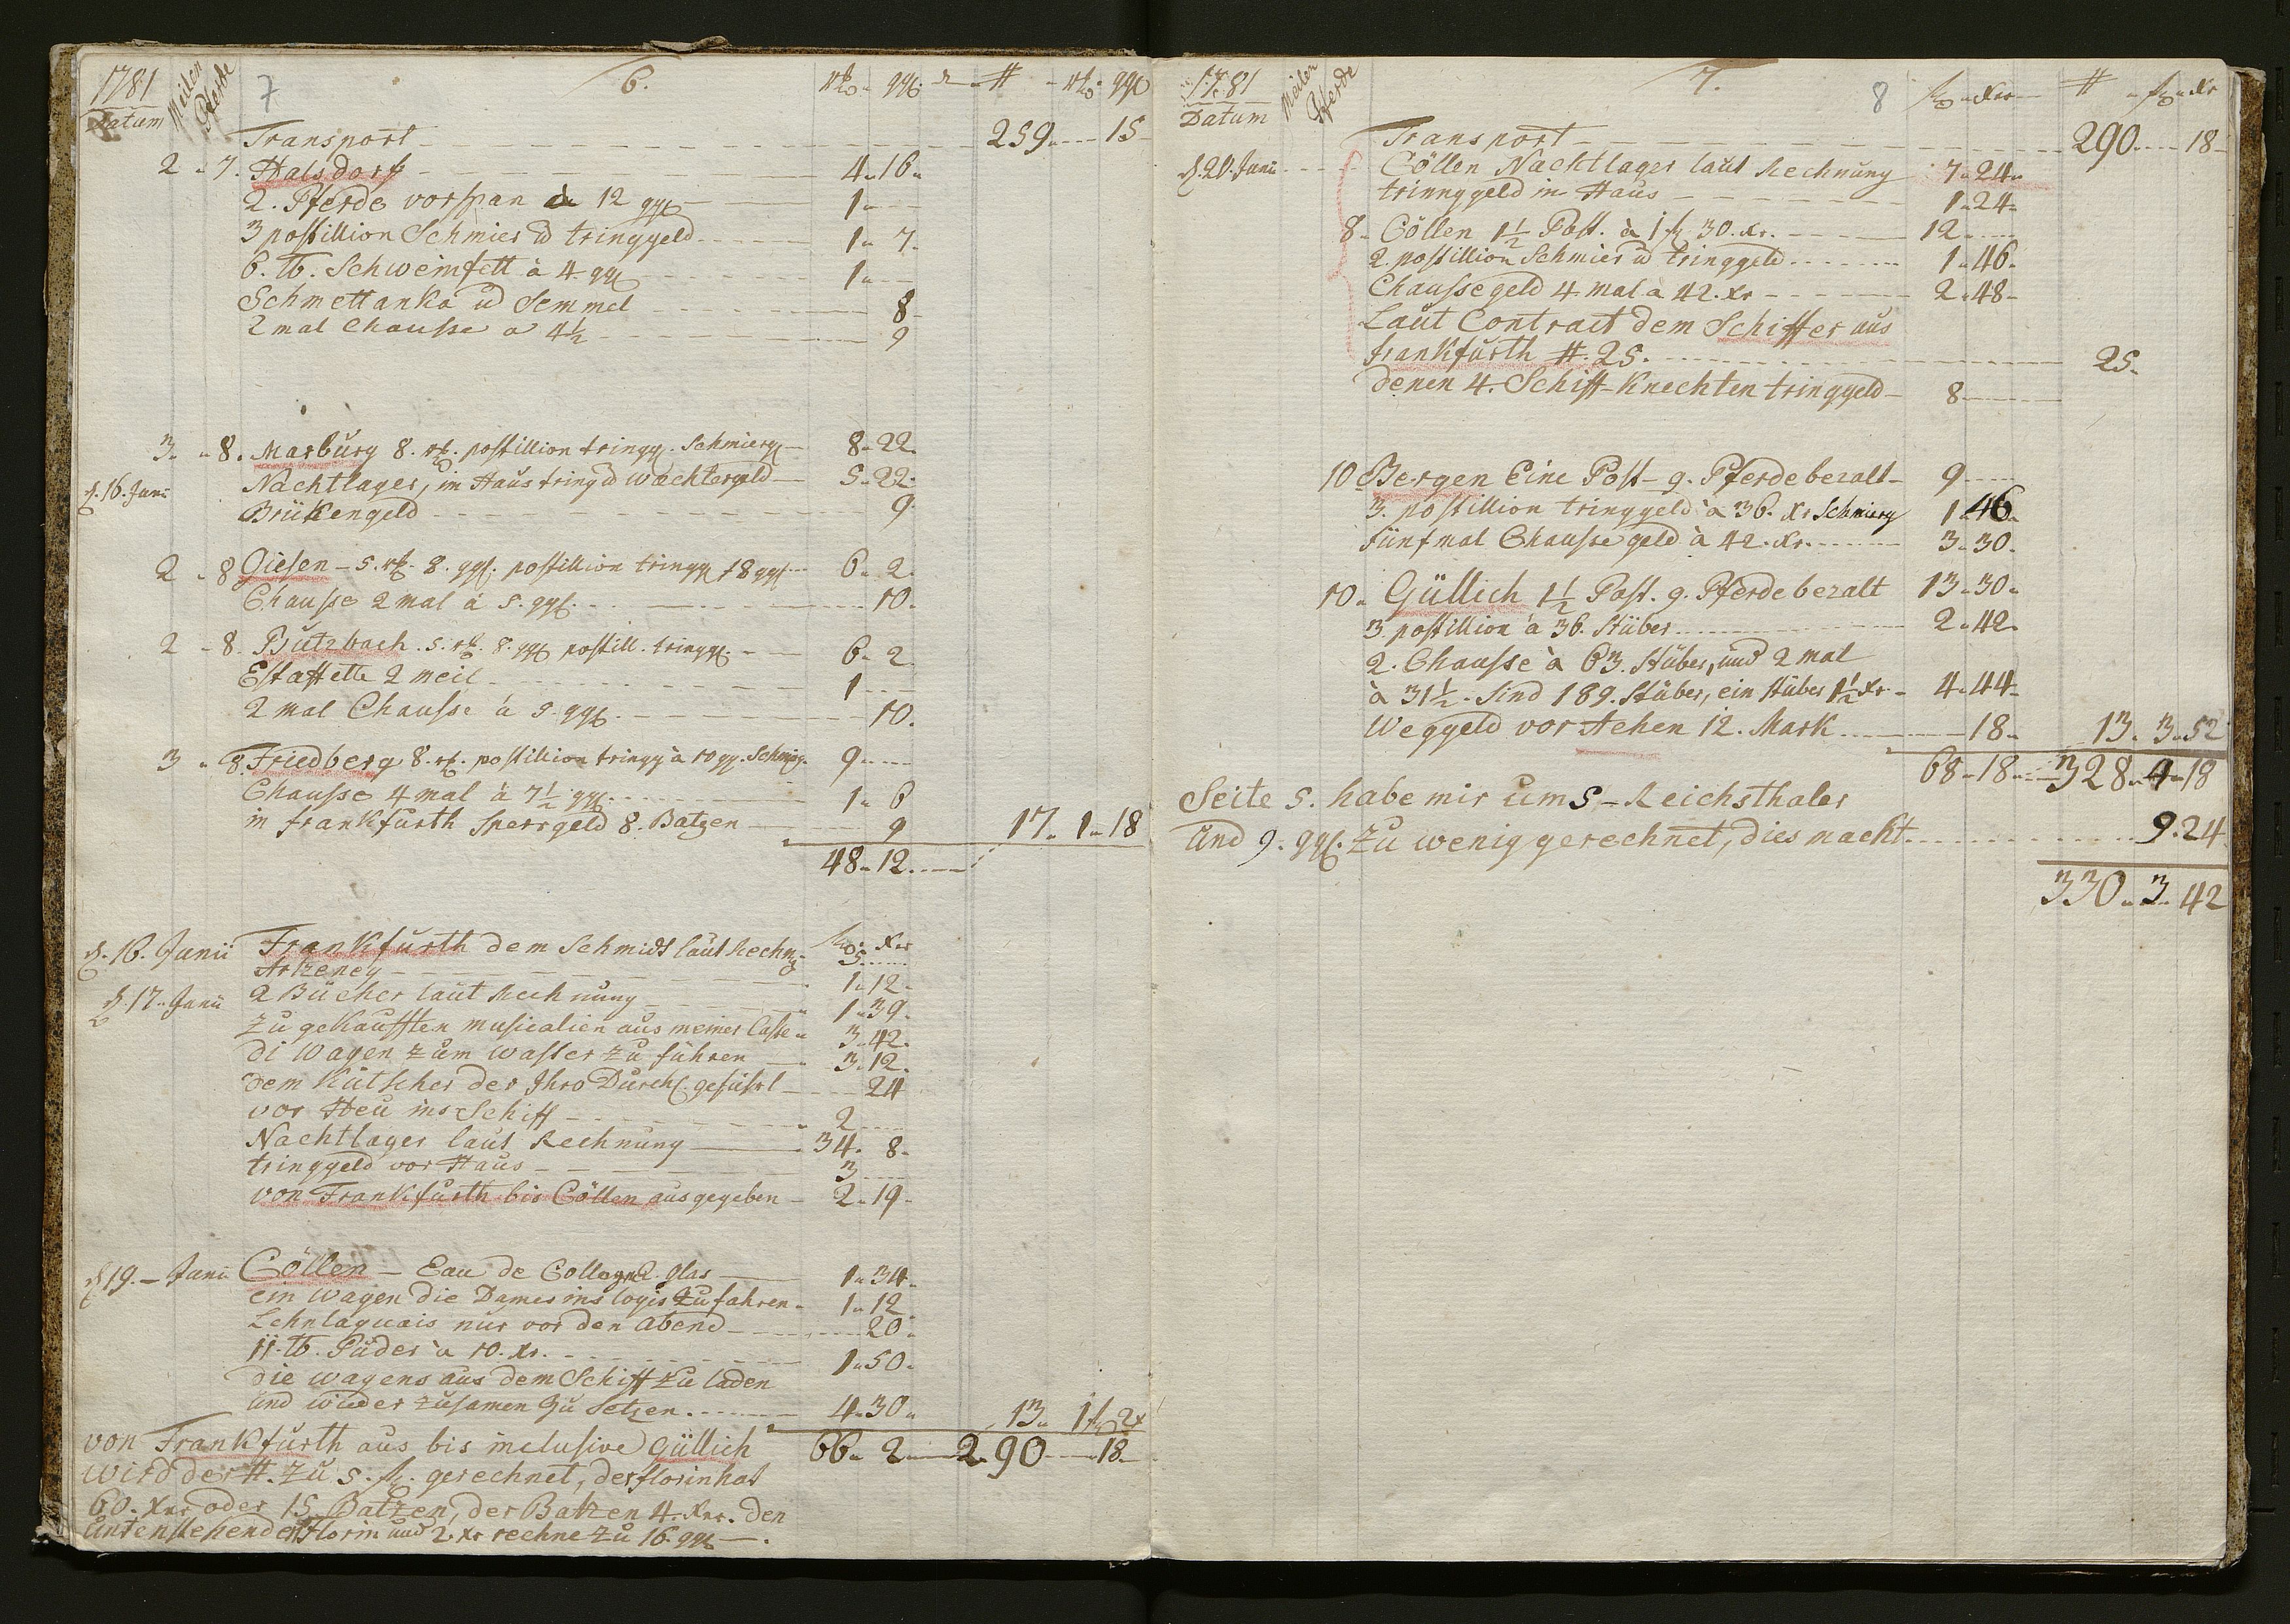 1781 Meilen Pferde 7 6. rt. ggl. # rt. ggl
Datum
Transport 259 15
2 7. Halsdorf 4 16
2. Pferde vorspan à 12 ggl 1
3 postillion Schmier ud tringgeld 1 7.
6. tb. Schweinfett à 4 ggl 1
Schmettanka ud Semmel 8
2 mal Chausse a 4½ 9
3. 8. Marburg 8. rt. postillion tringg. Schmierg 8 22.
d. 16. Junii Nachtlager, im Haus tring ud wächtergeld 5 22.
Brükengeld 9.
2 8 Giesen 5. rt. 8. ggl. postillion tringg 18 ggl. 6 2.
Chausse 2 mal à 5. ggl. 10.
2 8. Butzbach. 5. rt. 8. ggl postill. tringg. 6 2
Estaffette 2 meil 1
2 mal Chausse à 5 ggl. 10.
3 8. Friedberg 8. rt. postillion tringg à 10 gg. Schmierg. 9
Chausse 4 mal à 7½ ggl. 1 6
in frankfurth Sperrgeld 8. Batzen 9 17 1 18
48 12
d. 16. Junii Frankfurth dem Schmidt laut Rechng fl. Xer 5
Artzeney 1 12
d. 17. Junii 2 Bücher laut Rechnung 1 39
Zu gekaufften musicalien aus meiner Casse 3 42.
di Wagen zum wasser zu führen 3 12.
dem Kutscher der Ihro Durchl. geführt 24
vor Heu ins Schiff 2
Nachtlager laut Rechnung 34. 8
tringgeld vor Haus 3
von Frankfurth bis Cöllen ausgegeben 2 19
d 19. Junii Cöllen Eau de Collogne 2. glas 1 34
ein wagen die Dames ins logis zu fahren 1 12
Lehnlaquais nur vor den abend 20
11. tb. Puder à 10. Xr. 1 50
die wagens aus dem Schiff zu laden
und wieder zusamen zu setzen. 4 30 13 1 fl 2x
von Frankfurth aus bis inclusive Güllich 66 2 290 18
wird der #. zu 5. fl. gerechnet, der florin hat
60. Xer oder 15. Batzen, der Batzen 4. Xer. den
untenstehenden Florin und 2 Xr rechne zu 16 ggl.
1781 Meilen Pferde 7. 8 fl. Xer # fl. Xr
Datum
Transport 290 18
d. 20. Junii Cöllen Nachtlager laut Rechnung 7 24
trinnggeld im Haus 1 24
8 Cöllen 1½ Post. à 1 fl 30. Xr. 12
2. postillion Schmier ud tringgeld 1 46.
Chaussegeld 4 mal a 42. Xr 2 48
Laut Contract dem Schiffer aus
frankfurth #. 25. 25.
denen 4. Schiff-Knechten tringgeld 8
10 Bergen Eine Post 9. Pferde bezalt 9
3. postillion tringgeld à 36. Xr Schmierg 1 46
fünf mal Chausse geld à 42. Xr. 3 30.
10. Güllich 1½ Post. 9. Pferde bezalt 13 30
3. postillion à 36. Stüber 2 42.
2. Chausse à 63. Stüber, und 2 mal
à 31½. sind 189. Stüber, ein Stüber 1½ Xr 4 44
Weggeld vor Aehen 12. Mark 18 13. 3 52
68 18 328 4 18
Seite 5. habe mir um 5 Reichsthaler
und 9. ggl. zu wenig gerechnet, dies macht 9. 24
330 3 42